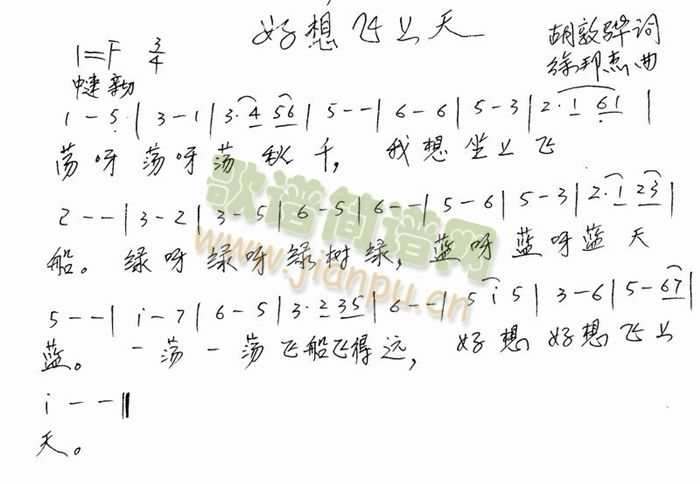 好想飞上天
1=F 3/4
中速 亲切
胡敦骅词
徐邦杰曲
1 - 5 | 3 - 1 | 3· 4 56 | 5 - - | 6 - 6 | 5 - 3 | 2· 1 61 |
荡呀荡呀荡秋千, 我想坐上飞
2 - - | 3 - 2 | 3 - 5 | 6 - 5 | 6 - - | 5 - 6 | 5 - 3 | 2· 1 23 |
船。绿呀绿呀绿树绿, 蓝呀蓝呀蓝天
5 - - | i - 7 | 6 - 5 | 3· 2 35 | 6 - - | 5 i 5 | 3 - 6 | 5 - 67 |
蓝。一荡一荡飞船飞得远, 好想好想飞上
i - - ‖
天。
歌谱简谱网
www.jianpu.cn